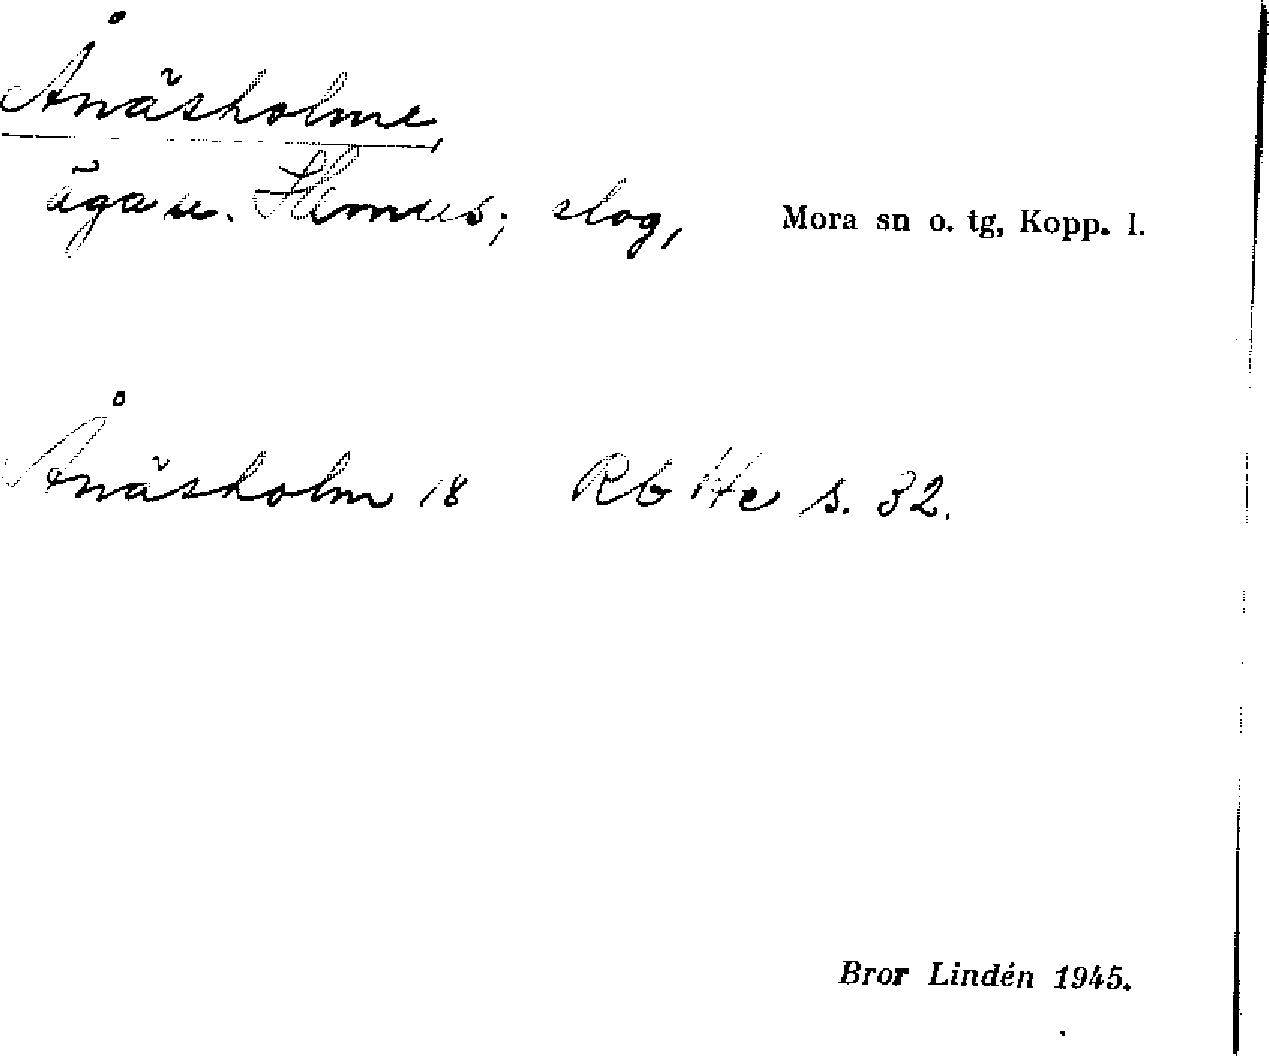 Ånäsholme,
äga u. Hemus; slog, Mora sn o. tg, Kopp. l.
Ånäsholm 18 Rb He s. 32.
Bror Lindén 1945.